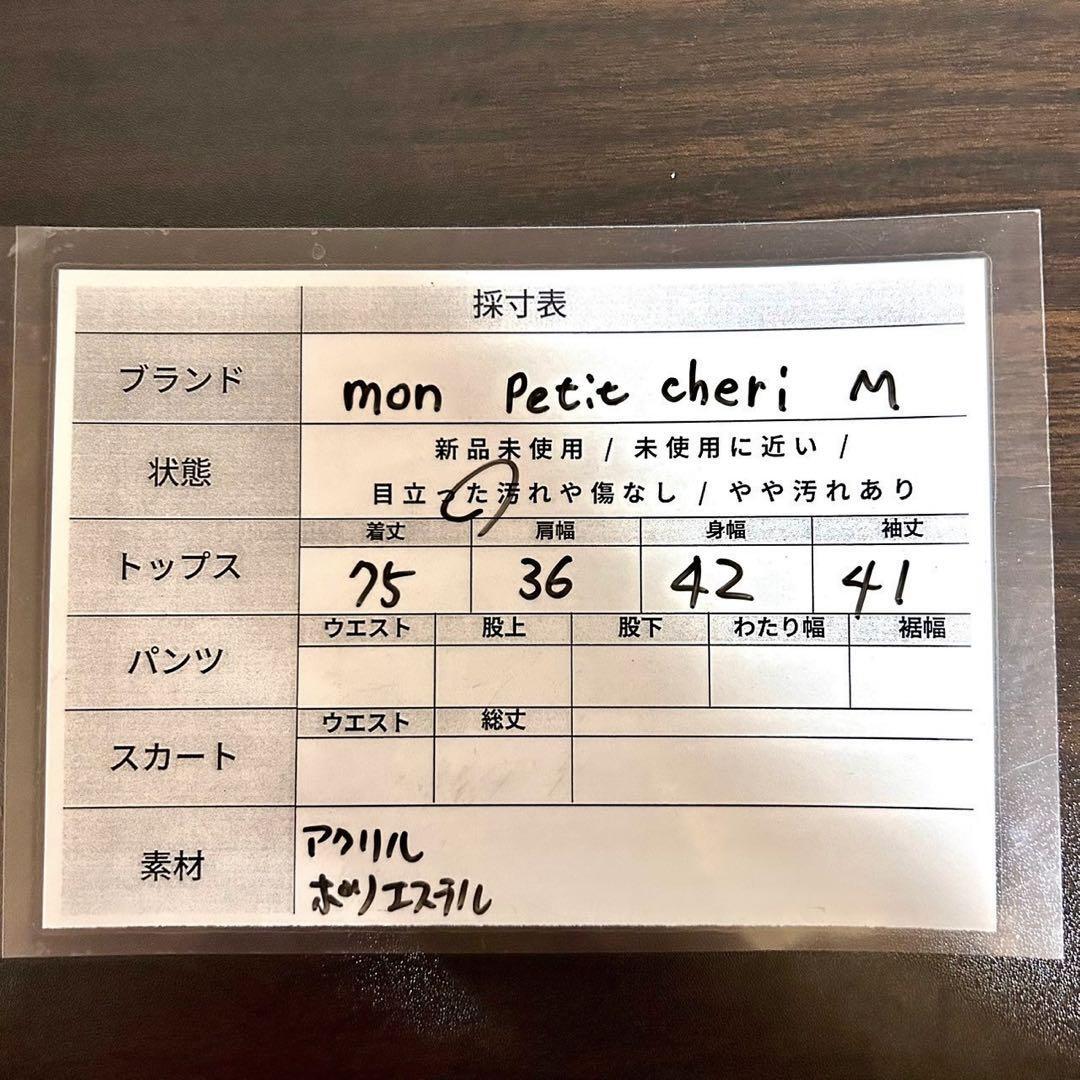 採寸表
ブランド mon Petit cheri M
状態 新品未使用 / 未使用に近い /
目立った汚れや傷なし / やや汚れあり
トップス 着丈 肩幅 身幅 袖丈
75 36 42 41
パンツ ウエスト 股上 股下 わたり幅 裾幅
スカート ウエスト 総丈
素材 アクリル
ポリエステル